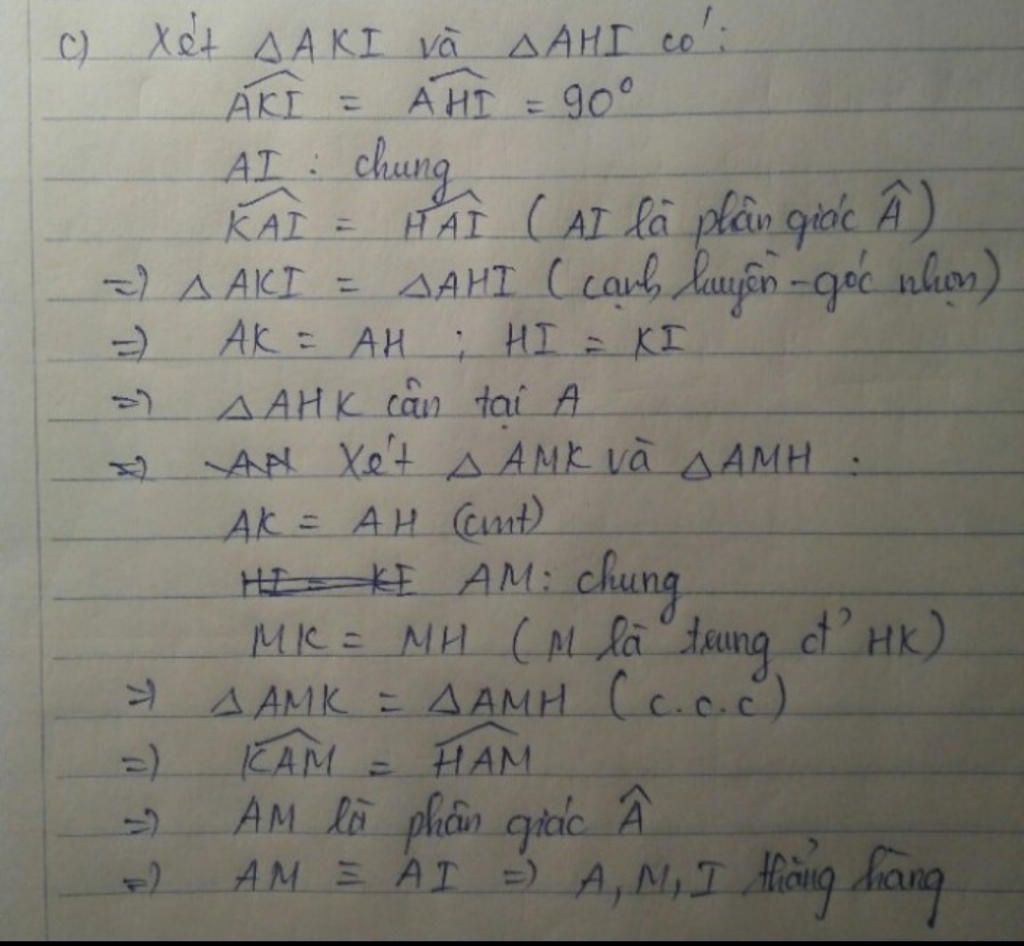 c) Xét △AKI và △AHI có:
$\widehat{AKI}$ = $\widehat{AHI}$ = 90°
AI : chung
$\widehat{KAI}$ = $\widehat{HAI}$ (AI là phân giác Â)
=) △AKI = △AHI (cạnh huyền - góc nhọn)
=) AK = AH ; HI = KI
=) △AHK cân tại A
Xét △AMK và △AMH :
AK = AH (cmt)
~~HI = KI~~ AM: chung
MK = MH (M là trung đ' HK)
=) △AMK = △AMH (c.c.c)
=) $\widehat{KAM}$ = $\widehat{HAM}$
=) AM là phân giác Â
=) AM ≡ AI =) A, M, I thẳng hàng